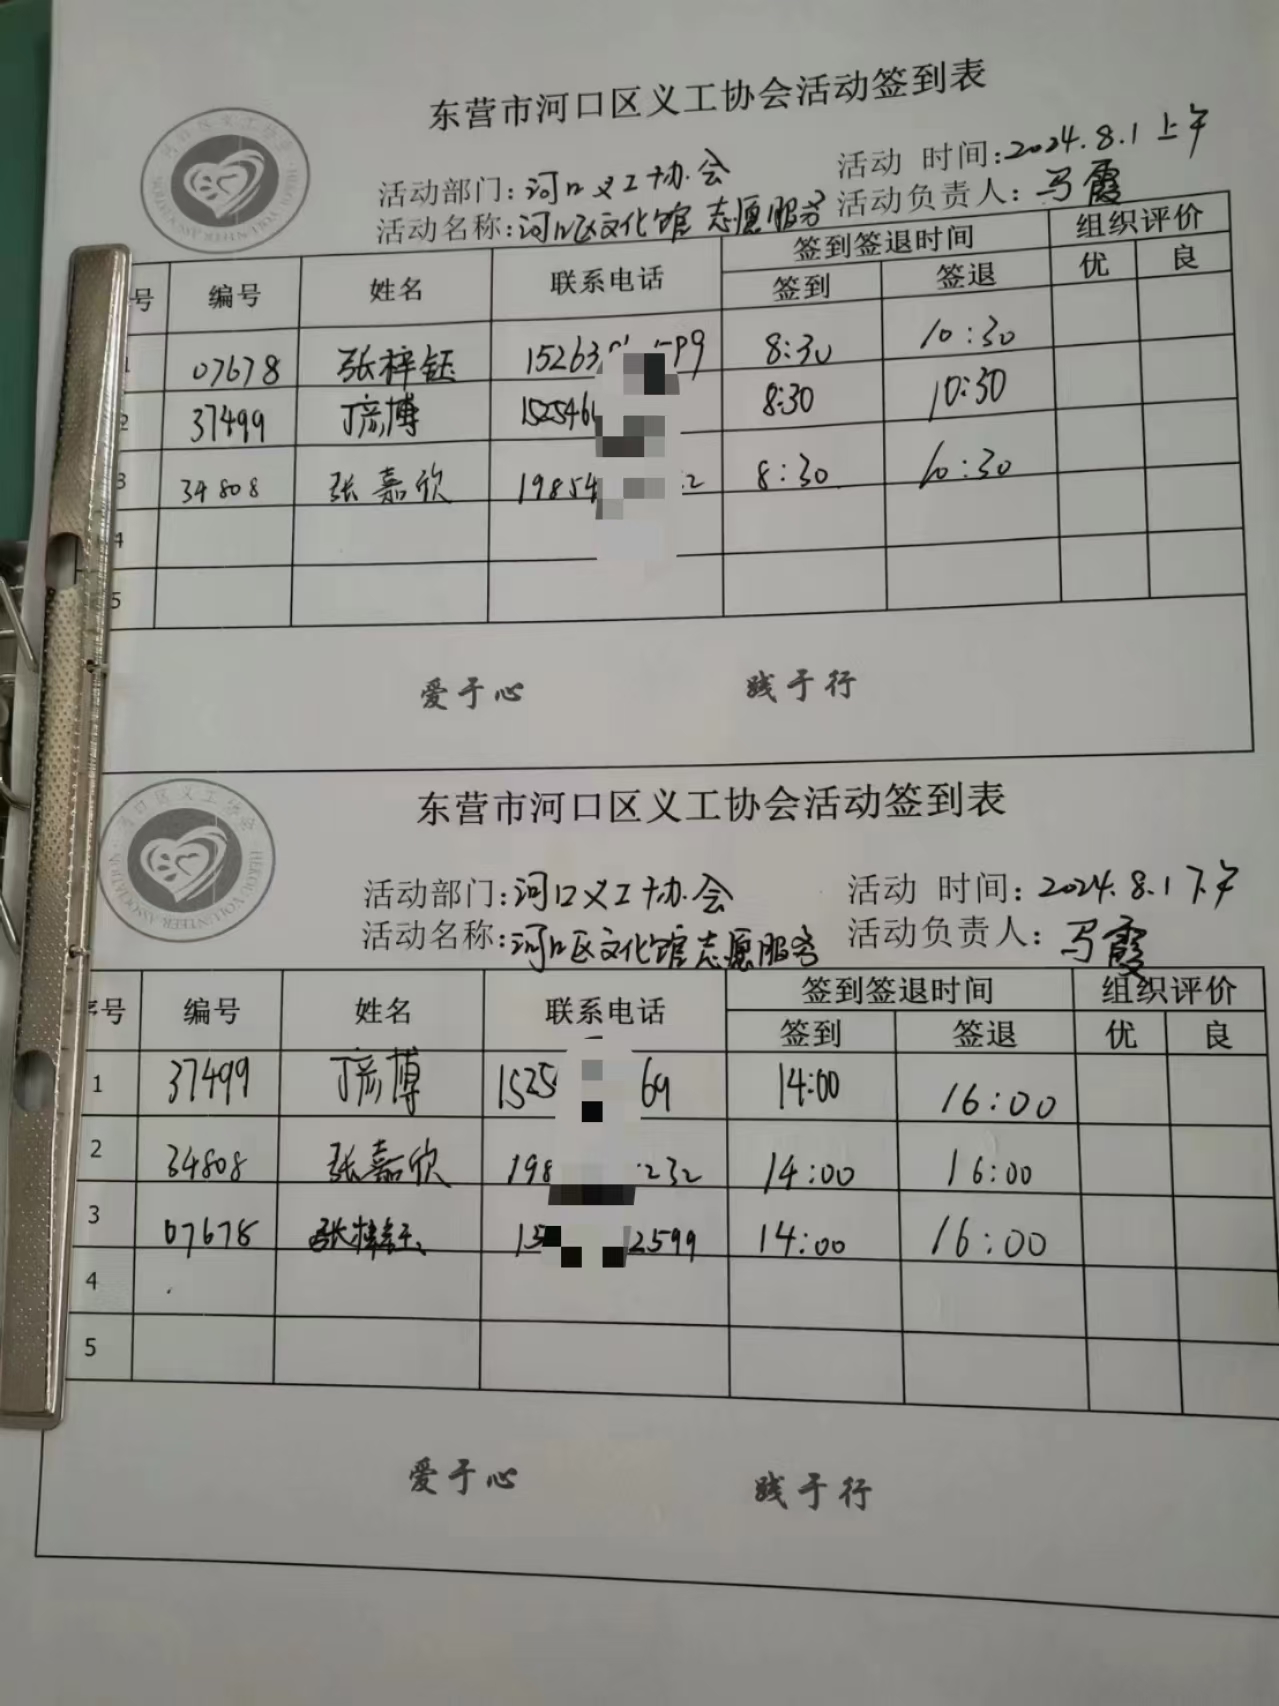 东营市河口区义工协会活动签到表
活动部门:河口义工协会 活动 时间:2024.8.1 上午
活动名称:河口区文化馆志愿服务 活动负责人:马霞
号 编号 姓名 联系电话 签到签退时间 组织评价
签到 签退 优 良
1 07678 张梓钰 15263 99 8:30 10:30
2 37499 丁彦博 152546 8:30 10:30
3 34808 张嘉欣 19854 2 8:30 10:30
4
5
爱于心 践于行
东营市河口区义工协会活动签到表
HEKOU VOLUNTEER ASSOCIATION
活动部门:河口义工协会 活动 时间:2024.8.1 下午
活动名称:河口区文化馆志愿服务 活动负责人:马霞
序号 编号 姓名 联系电话 签到签退时间 组织评价
签到 签退 优 良
1 37499 丁彦博 1525 69 14:00 16:00
2 34808 张嘉欣 198 232 14:00 16:00
3 07678 张梓钰 15 2599 14:00 16:00
4
5
爱于心 践于行